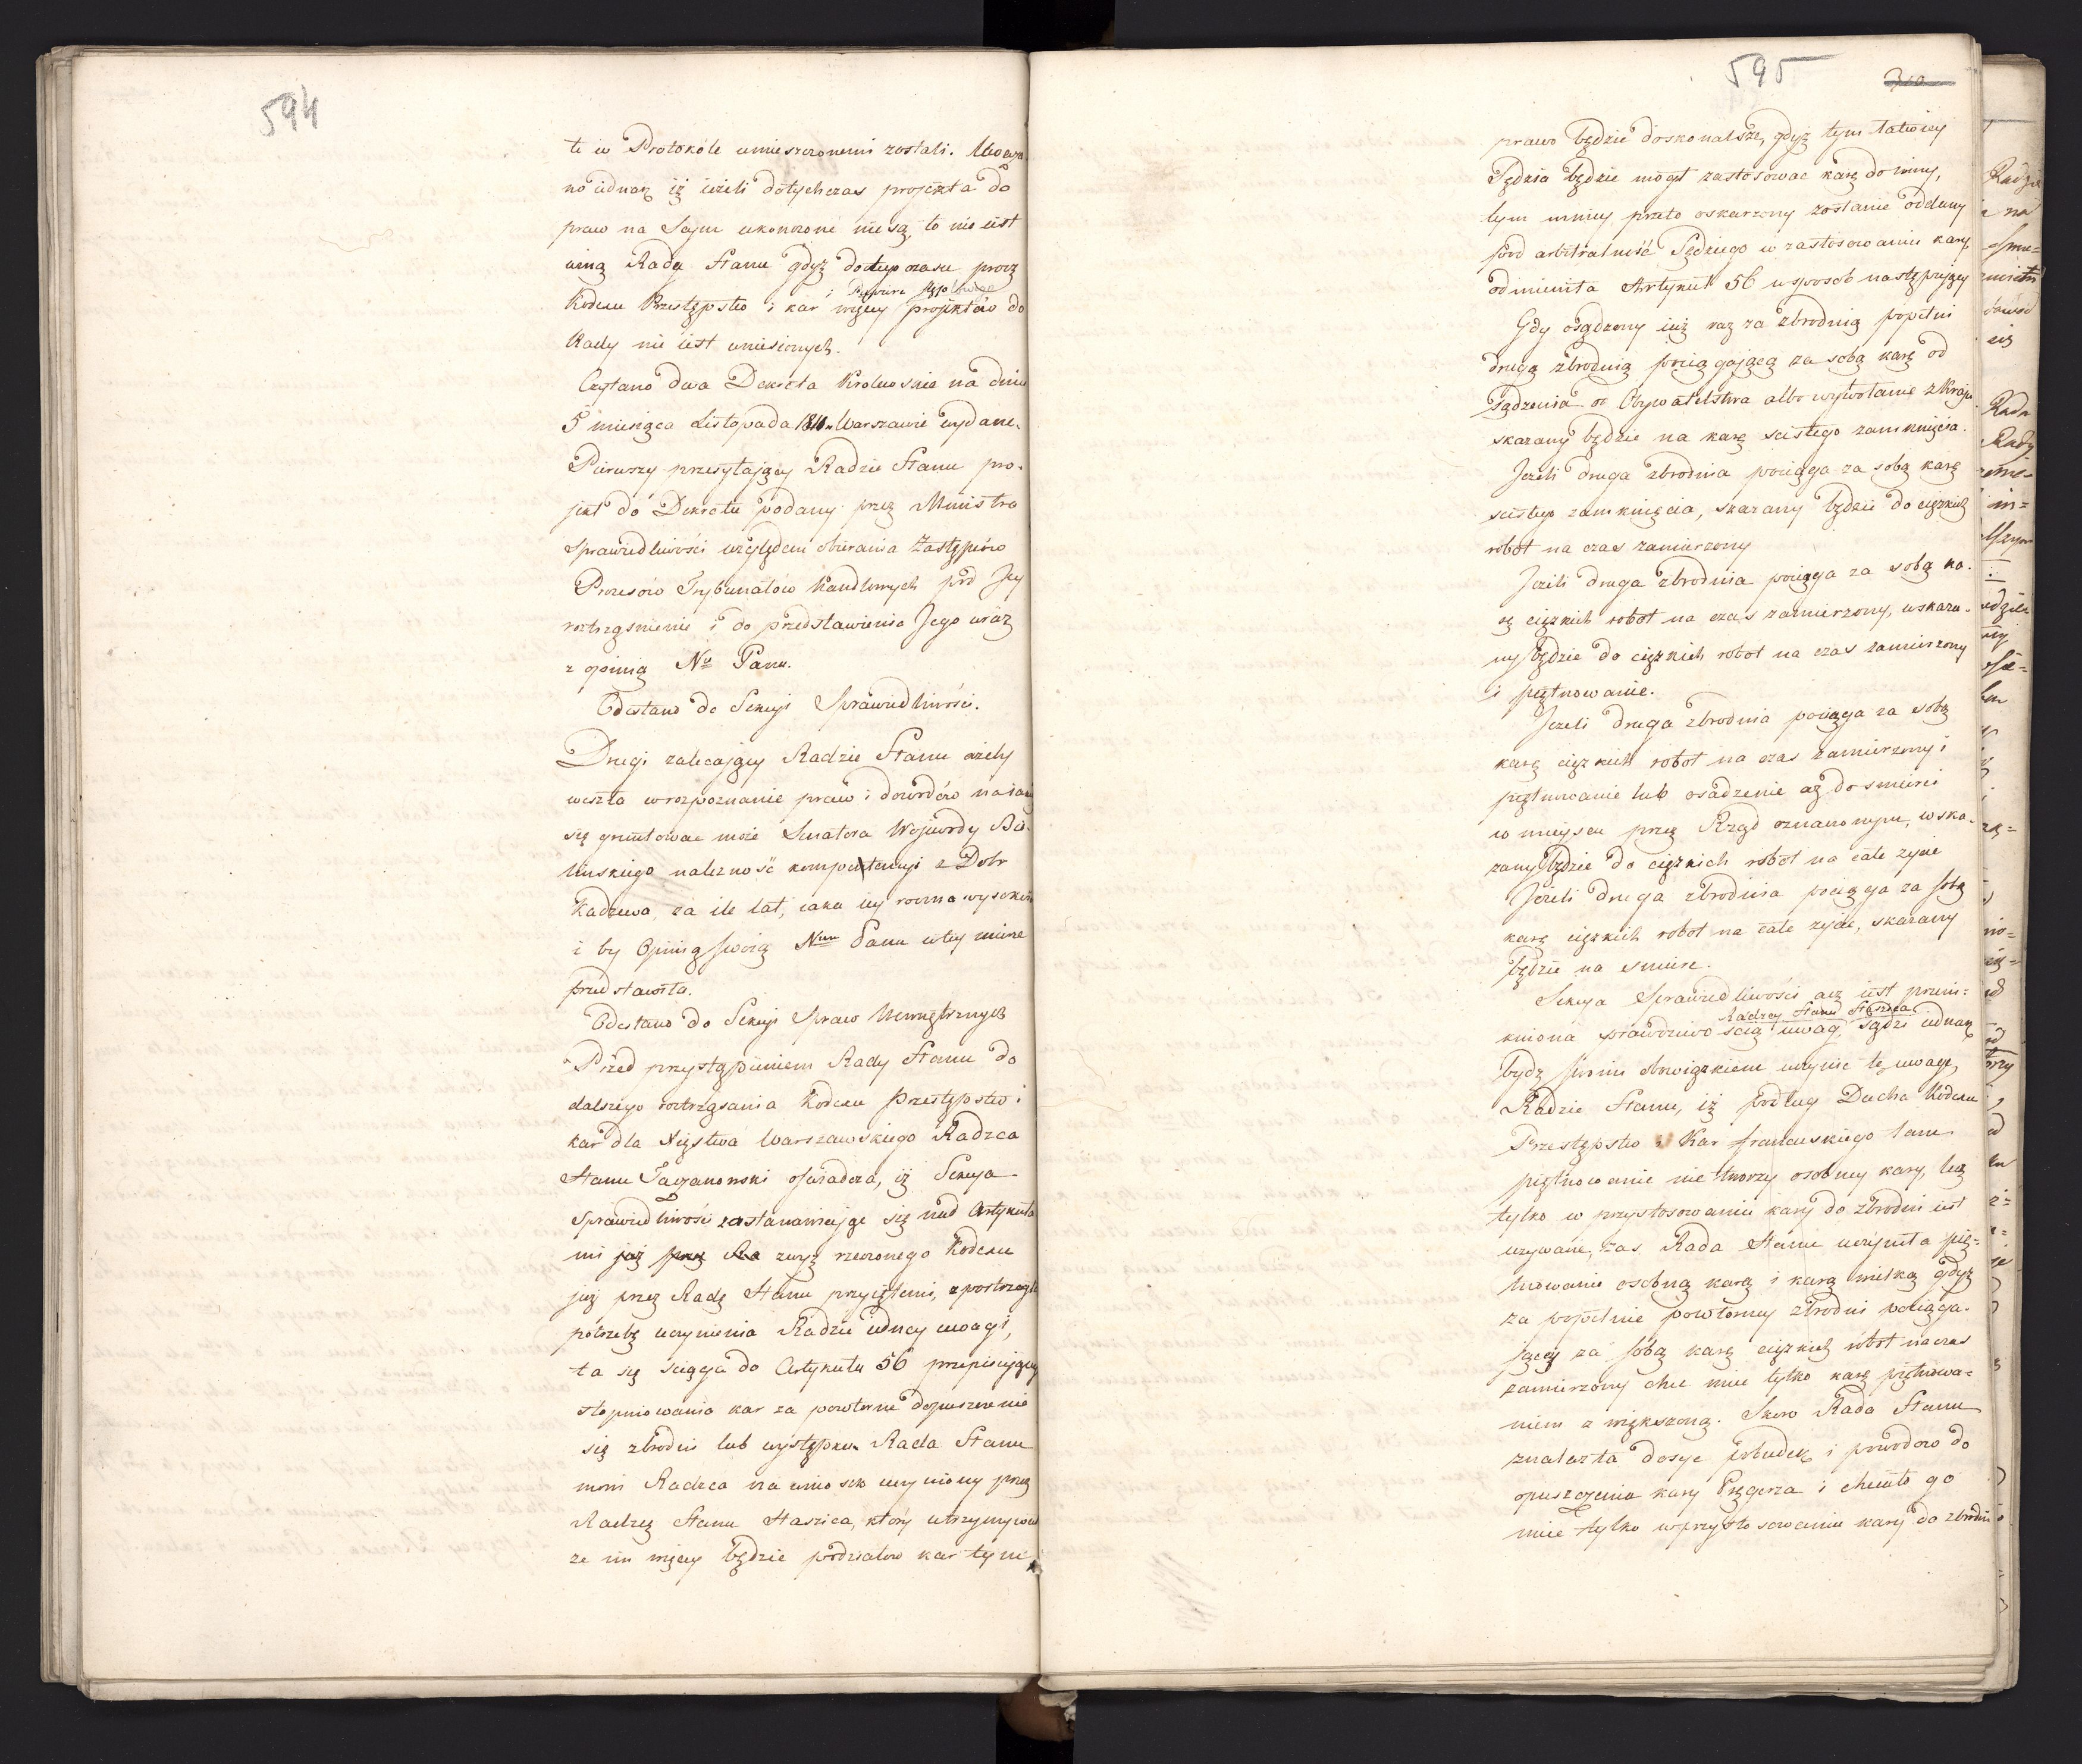 594
te w Protokóle umieszczonemi zostali. Uważa-
no iednak iż ieżeli dotychczas projekta do
praw na Sejm ukonczone nie są, to nie iest
winą Rady Stanu gdyż dotego czasu procz
Kodexu Przestępstw i kar więcey projektów do
Rady nie iest wniesionych.
Czytano dwa Dekreta Krolewskie na dniu
5 miesiąca Listopada 1810 w Warszawie wydane.
Pierwszy przesyłający Radzie Stanu pro-
jekt do Dekretu podany przez Ministra
Sprawiedliwości względem obierania Zastępców
Prezesów Trybunałów Handlowych pod Jey
roztrząśnienie i do przedstawienia Jego wraz
z opinią Nu Panu.
Odesłano do Sekcyi Sprawiedliwości.
Drugi zalecający Radzie Stanu ażeby
weszła w rozpoznanie praw i dowodów na iakich
się gruntować może Senatora Wojewody Bie-
lińskiego należność kompetencyi z Dobr
Kadzewa, za ile lat, iaka iey roczna wysokość
i by Opinią swoią Nmu Panu w tey mierze
przedstawiła.
Odesłano do Sekcyi Spraw Wewnętrznych
Przed przystąpieniem Rady Stanu do
dalszego roztrząsania Kodexu Przestępstw i
kar dla Xięstwa Warszawskiego Radzca
Stanu Taczanowski oświadcza, iż Sekcya
Sprawiedliwości zastanawiając się nad Artykuła
mi już przez Ra zwyż rzeczonego Kodexu
już przez Radę Stanu przyiętemi, spostrzegła
potrzebę uczynienia Radzie iedney uwagi,
ta się ściąga do Artykułu 56 przepisującego
stopniowania kar za powtorne dopuszczenie
się zbrodni lub występku. Rada Stanu
mowi Radzca na wniosek uczyniony przez
Radzcę Stanu Staszica, który utrzymywał
ze im więcey będzie podziałow kar tym
595
300
prawo będzie doskonalsze, gdyż tym łatwiey
Sędzia będzie mogł zastosować karę do winy,
tym mniey przeto oskarzony zostanie oddany
pod arbitralność Sędziego w zastosowaniu kary,
odmieniła Artykuł 56 w sposob następujący
Gdy osądzony iuż raz za zbrodnią popełni
drugą zbrodnią pociągającą za sobą karę od
sądzenia od Obywatelstwa albo wywołanie z Kraju
skazany będzie na karę scisłego zamknięcia.
Jeżeli druga zbrodnia pociąga za sobą karę
scisłego zamknięcia, skazany będzie do ciężkich
robot na czas zamierzony
Jeżeli druga zbrodnia pociąga za sobą ka-
rę ciężkich robot na czas zamierzony, wskaza-
ny będzie do ciężkich robot na czas zamierzony
i piętnowanie.
Jeżeli druga zbrodnia pociąga za sobą
karę ciężkich robot na czas zamierzony i
piętnowanie lub osadzenie aż do smierci
w mieyscu przez Rząd oznaczonym, wska-
zany będzie do ciężkich robot na całe życie
Jeżeli druga zbrodnia pociąga za sobą
karę ciężkich robot na całe życie, skazany
będzie na smierc.
Sekcya Sprawiedliwości acz iest przeni-
Radzcy Stanu Staszica
kniona prawdziwością uwag, sądzi iednak
bydź swoim obowiązkiem uczynić tę uwagę
Radzie Stanu, iż podług Ducha Kodexu
Przestępstw i Kar francuskiego tam
piętnowanie nie tworzy osobney kary, lecz
tylko w przystosowaniu kary do zbrodni iest
używane, zas Rada Stanu uczyniła pię-
tnowanie osobną karą i karą wielką gdyż
za popełnie powtorney zbrodni pociąga-
jącey za sobą karę ciężkich robot na czas
zamierzony chce mieć tylko karę piętnowa-
niem zwiększoną. Skoro Rada Stanu
znalazła dosyć pobudek i powodow do
opuszczenia kary Pręgierza i chciała go
mieć tylko w przystosowaniu kary do zbrodni